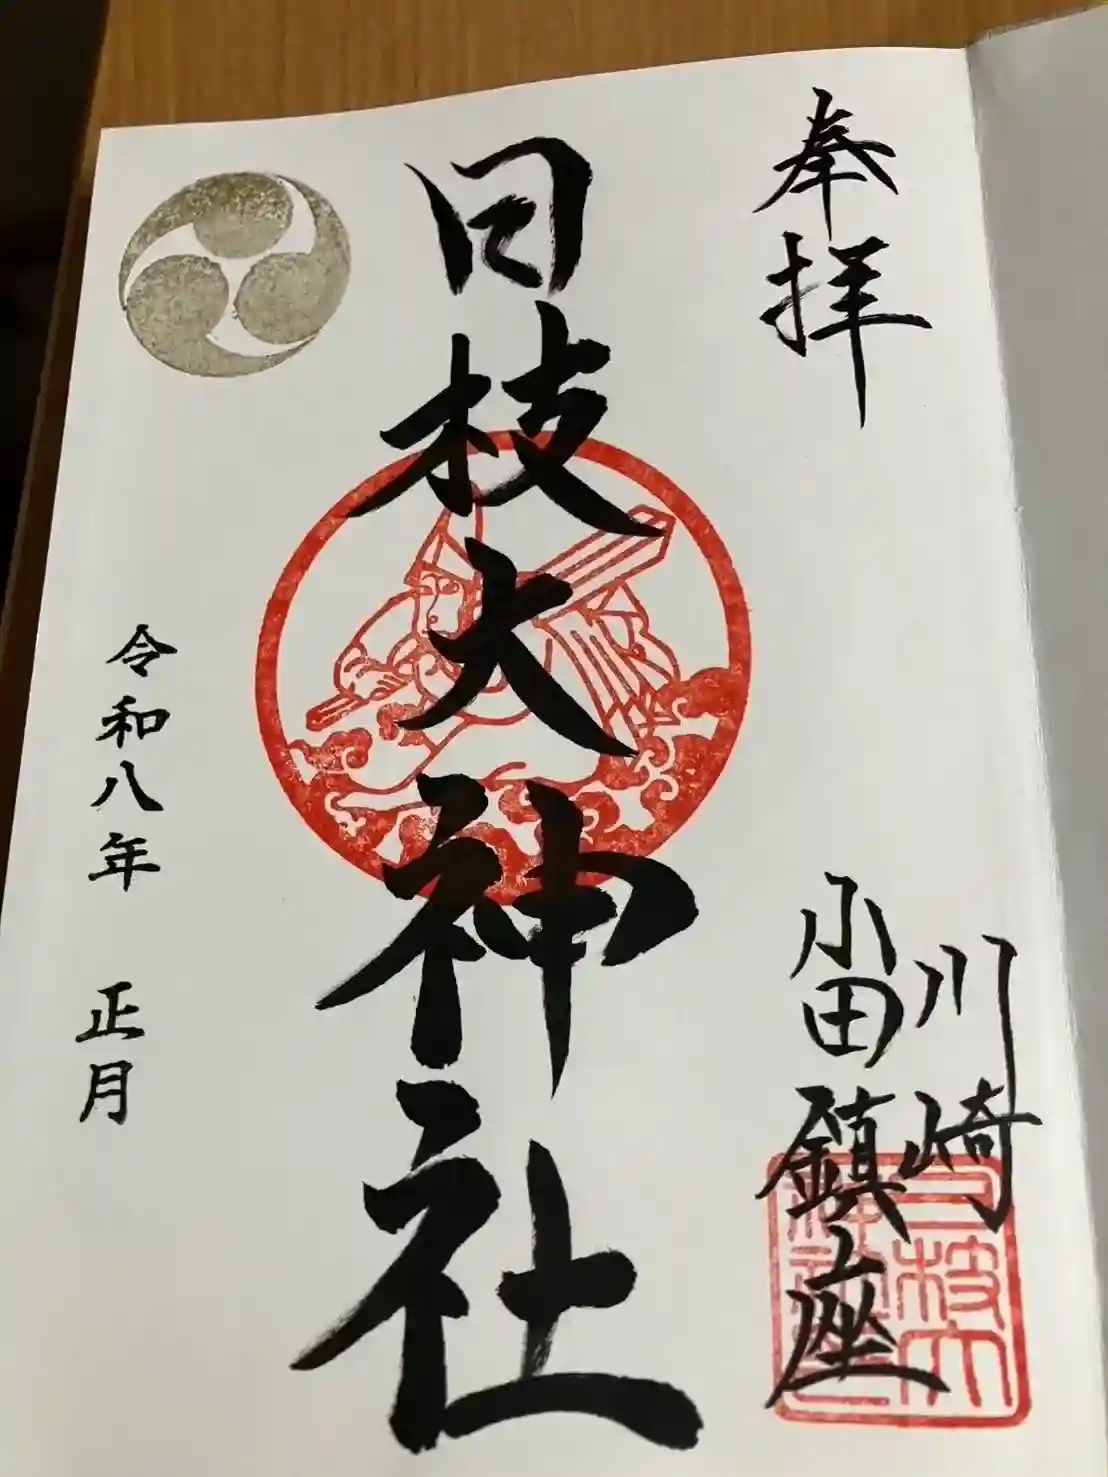 奉拝
川崎
小田鎮座
日枝大神社
令和八年 正月